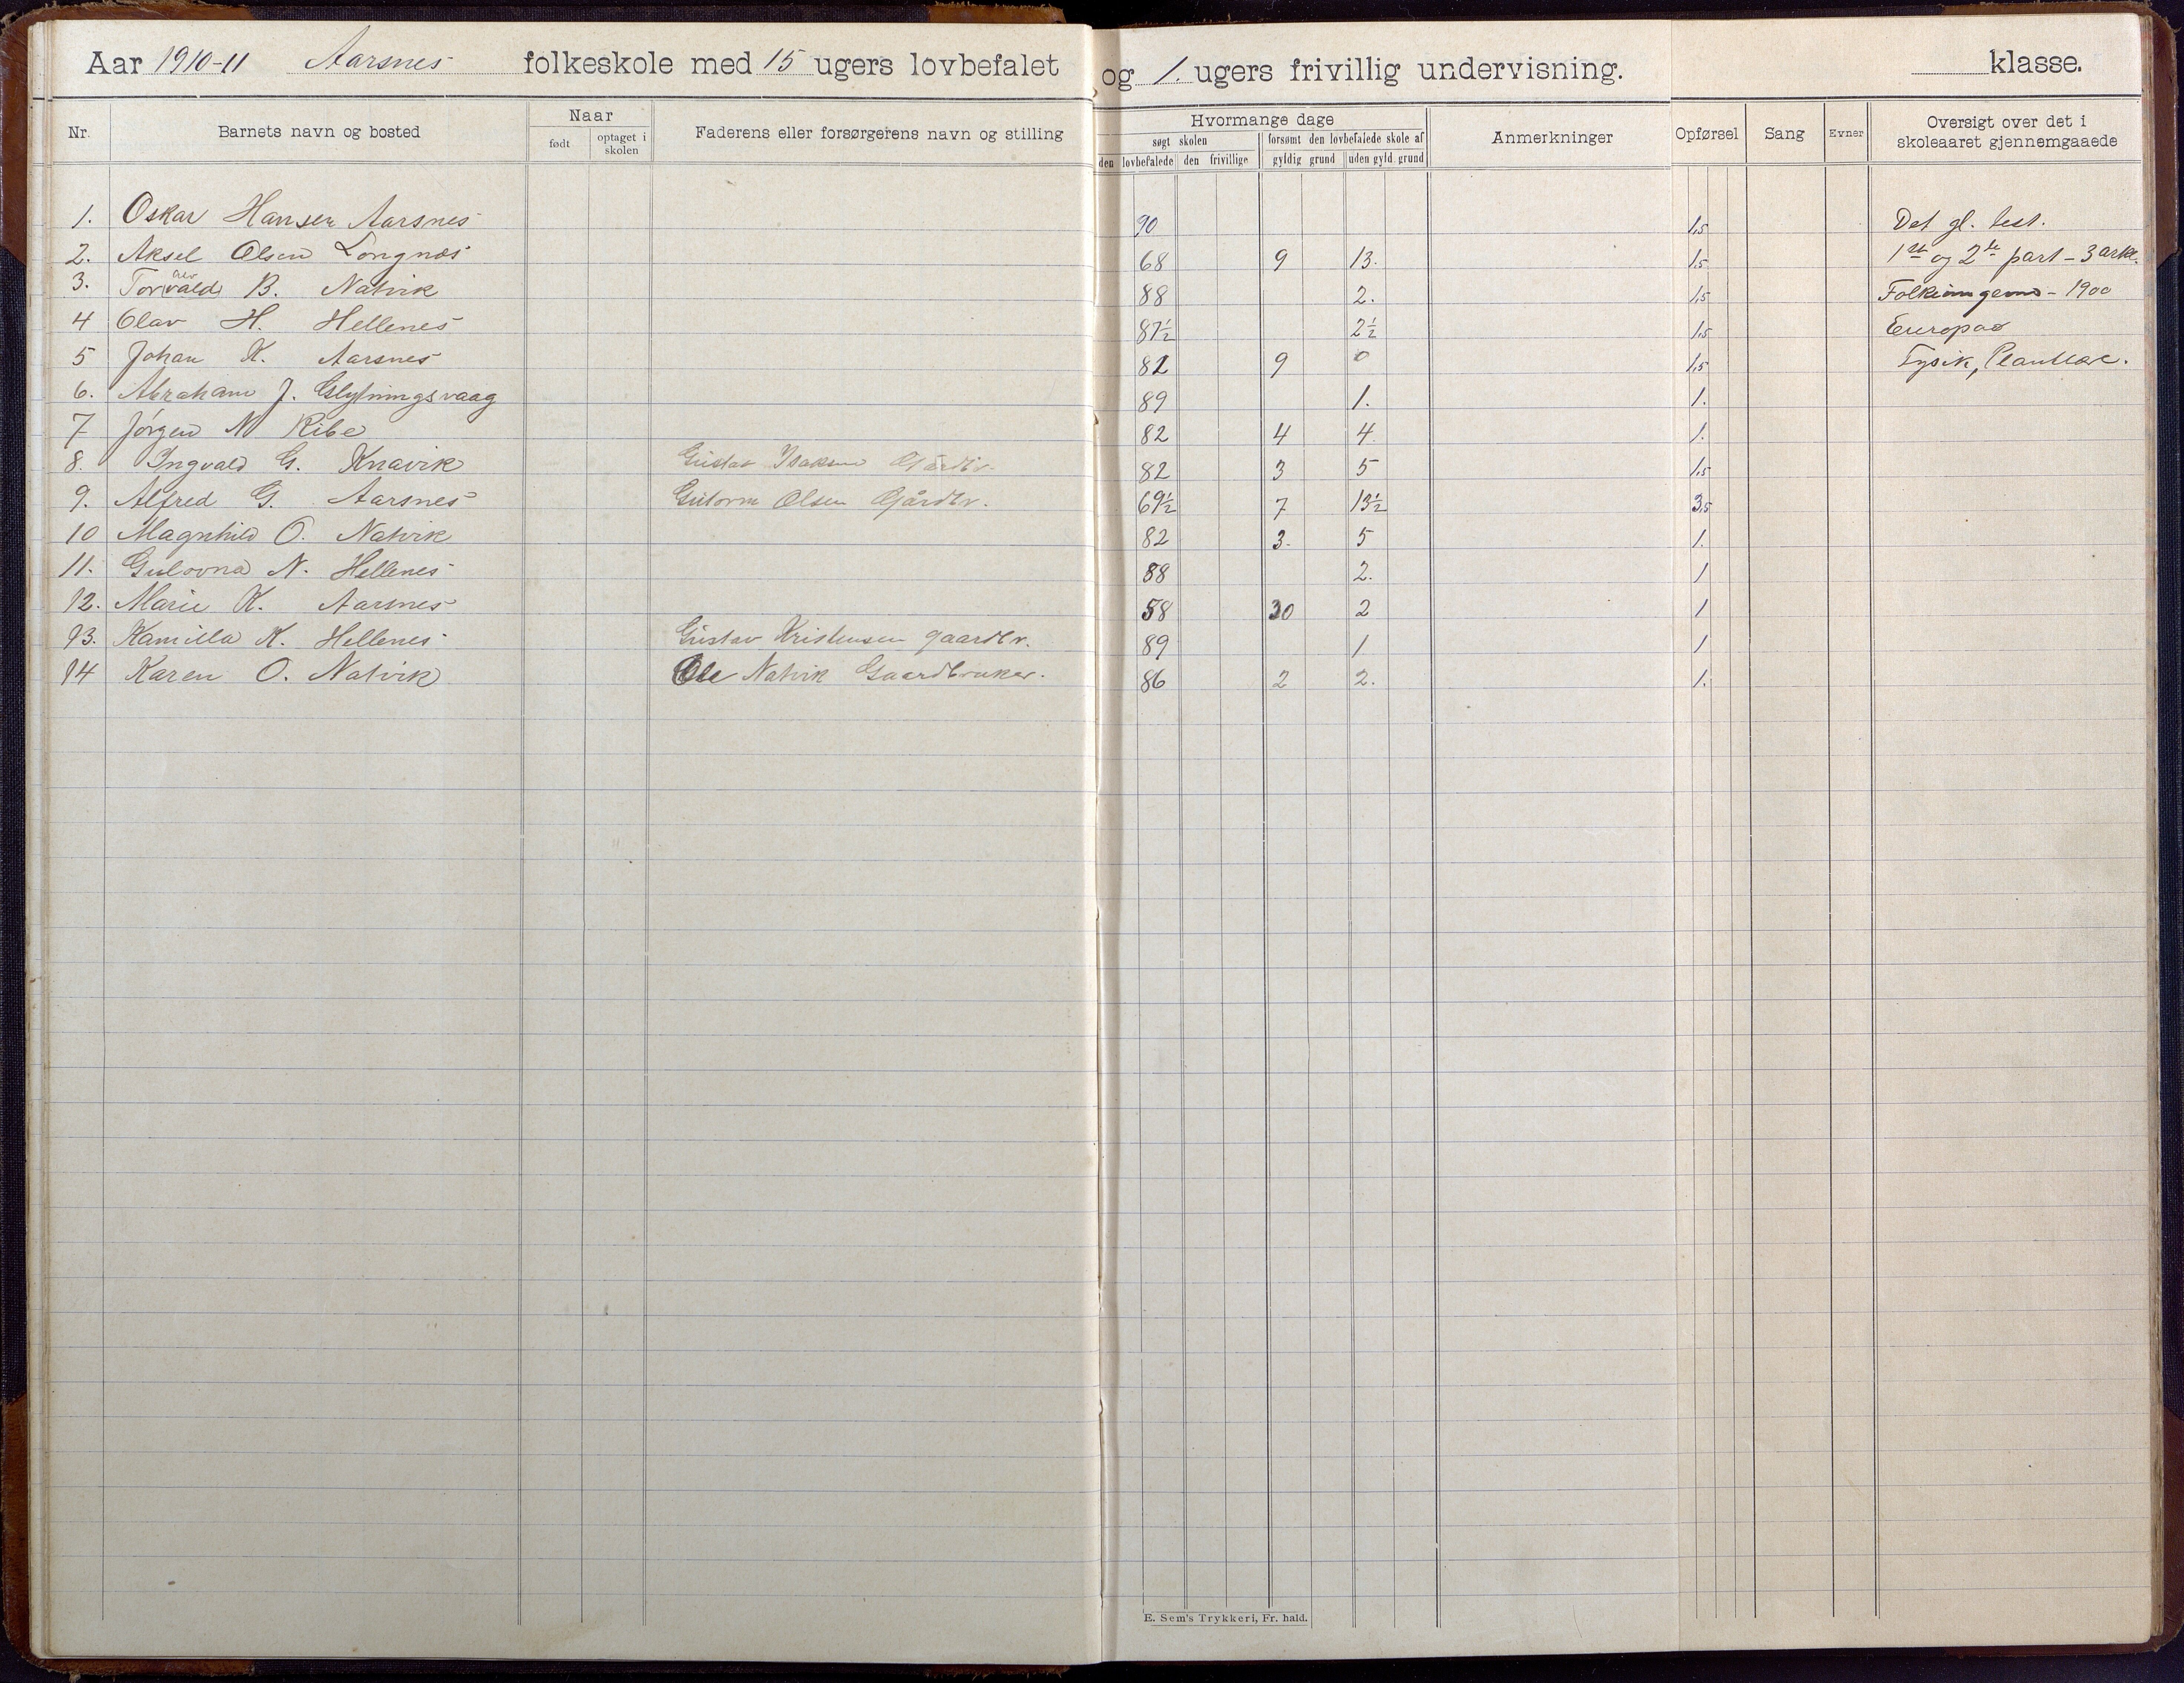 Aar 1910-11 Aarsnes folkeskole med 15 ugers lovbefalet og 1. ugers frivillig undervisning. klasse.
Nr. Barnets navn og bosted Naar født optaget i skolen Faderens eller forsørgerens navn og stilling Hvormange dage søgt skolen den lovbefalede den frivillige forsømt den lovbefalede skole af gyldig grund uden gyld. grund Anmerkninger Opførsel Sang Evner Oversigt over det i skoleaaret gjennemgaaede
1. Oskar Hansen Aarsnes 90 1,5 Det gl. test.
2. Aksel Olsen Longnes 68 9 13. 1,5 1ste og 2te part - 3 artk.
3. Torvald B. Natvik 88 2. 1,5 - 1900
4 Olav H. Hellenes 87½ 2½ 1,5 Europas
5 Johan K. Aarsnes 81 9 0 1,5 Fysik, Plantelære.
6. Abraham J. 89 1. 1.
7 Jörgen N Ribe 82 4 4. 1.
8. Ingvald G. Knavik Gustav Isaksen Gårdbr. 82 3 5 1,5
9. Alfred G. Aarsnes Gutorm Olsen Gårdbr. 69½ 7 13½ 3,5
10 Magnhild O. Natvik 82 3. 5 1.
11. Gulovna N. Hellenes 88 2. 1
12. Marie K. Aarsnes 58 30 2 1
13. Kamilla K. Hellenes Gustav Kristensen gaardbr. 89 1 1
14 Karen O. Natvik Ole Natvik Gaardbruker. 86 2 2. 1.
E. Sem's Trykkeri, Fr. hald.